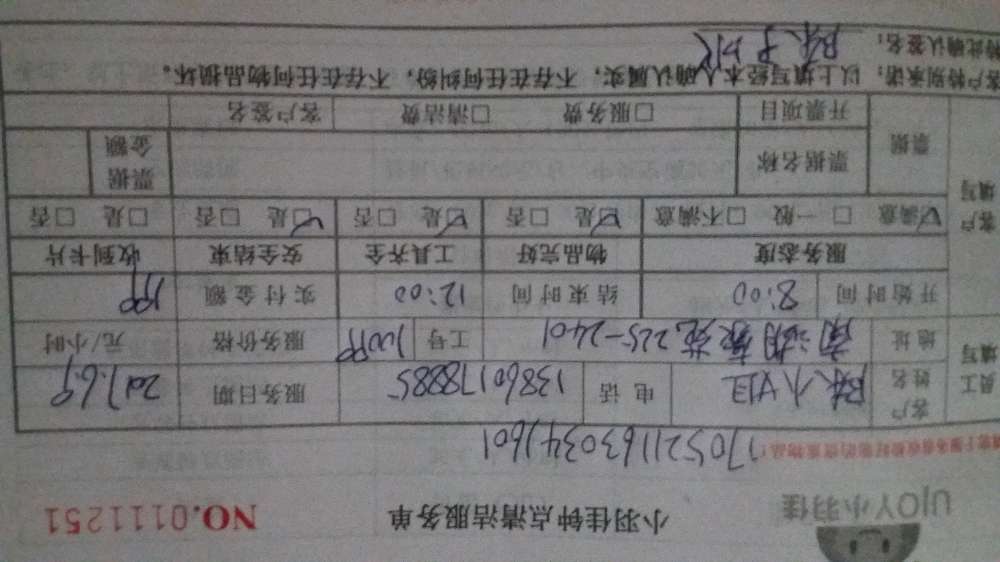 UJOY小羽佳
小羽佳钟点清洁服务单
NO.0111251
170521163034601
员工填写
客户姓名 陈小姐 电话 13860178885 服务日期 2017.6.9
地址 225-2401 工号 服务价格 元/小时
开始时间 8:00 结束时间 12:00 实付金额
服务态度 物品完好 工具齐全 安全结束 收到卡片
客户填写
☑满意 □一般 □不满意 ☑是 □否 ☑是 □否 ☑是 □否 □是 □否
票据 票据名称 票据金额
开票项目 □服务费 □清洁费 客户签名
客户特别承诺：以上填写经本人确认属实，不存在任何纠纷，不存在任何物品损坏。
特此确认签名：